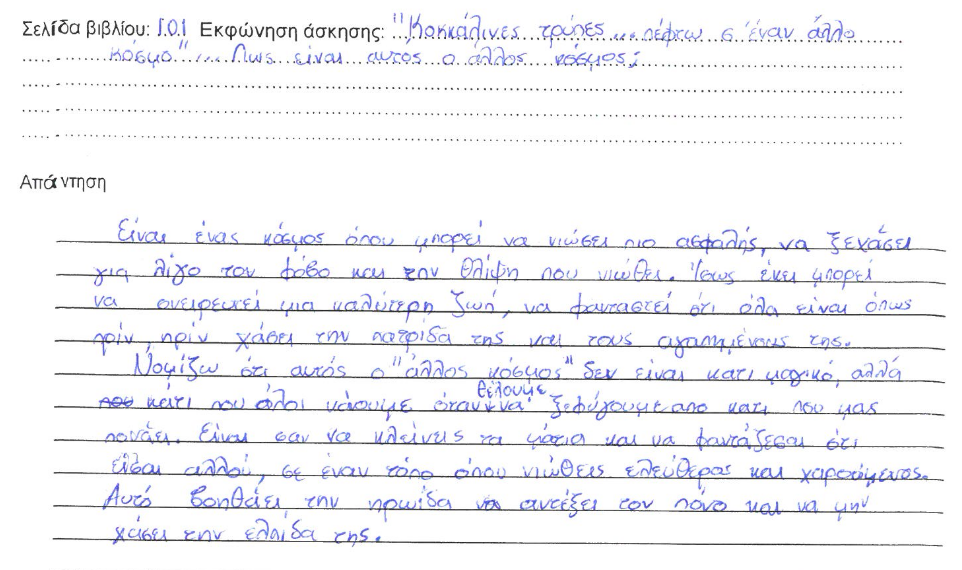 Σελίδα βιβλίου: 101 Εκφώνηση άσκησης: "Κοκκάλινες τρύπες ... πέφτω σ' έναν άλλο
κόσμο"... Πως είναι αυτος ο άλλος κόσμος;
Απάντηση
Είναι ένας κόσμος όπου μπορεί να νιώσει πιο ασφαλής, να ξεχάσει
για λίγο τον φόβο και την θλίψη που νιώθει. Ίσως έκει μπορεί
να ονειρευτεί μια καλύτερη ζωή, να φανταστεί ότι όλα είναι όπως
πρίν, πρίν χάσει την πατρίδα της και τους αγαπημένους της.
Νομίζω ότι αυτός ο "άλλος κόσμος" δεν είναι κατι μαγικό, αλλά
κάτι που όλοι κάουμε όταν θέλουμε να ξεφύγουμε απο κατι που μας
πονάει. Είναι σαν να κλείνεις τα μάτια και να φαντάζεσαι ότι
είσαι αλλού, σε έναν τόπο όπου νιώθεις ελεύθερος και χαρούμενος.
Αυτό βοηθάει την ηρωίδα να αντέξει τον πόνο και να μην
χάσει την ελπίδα της.